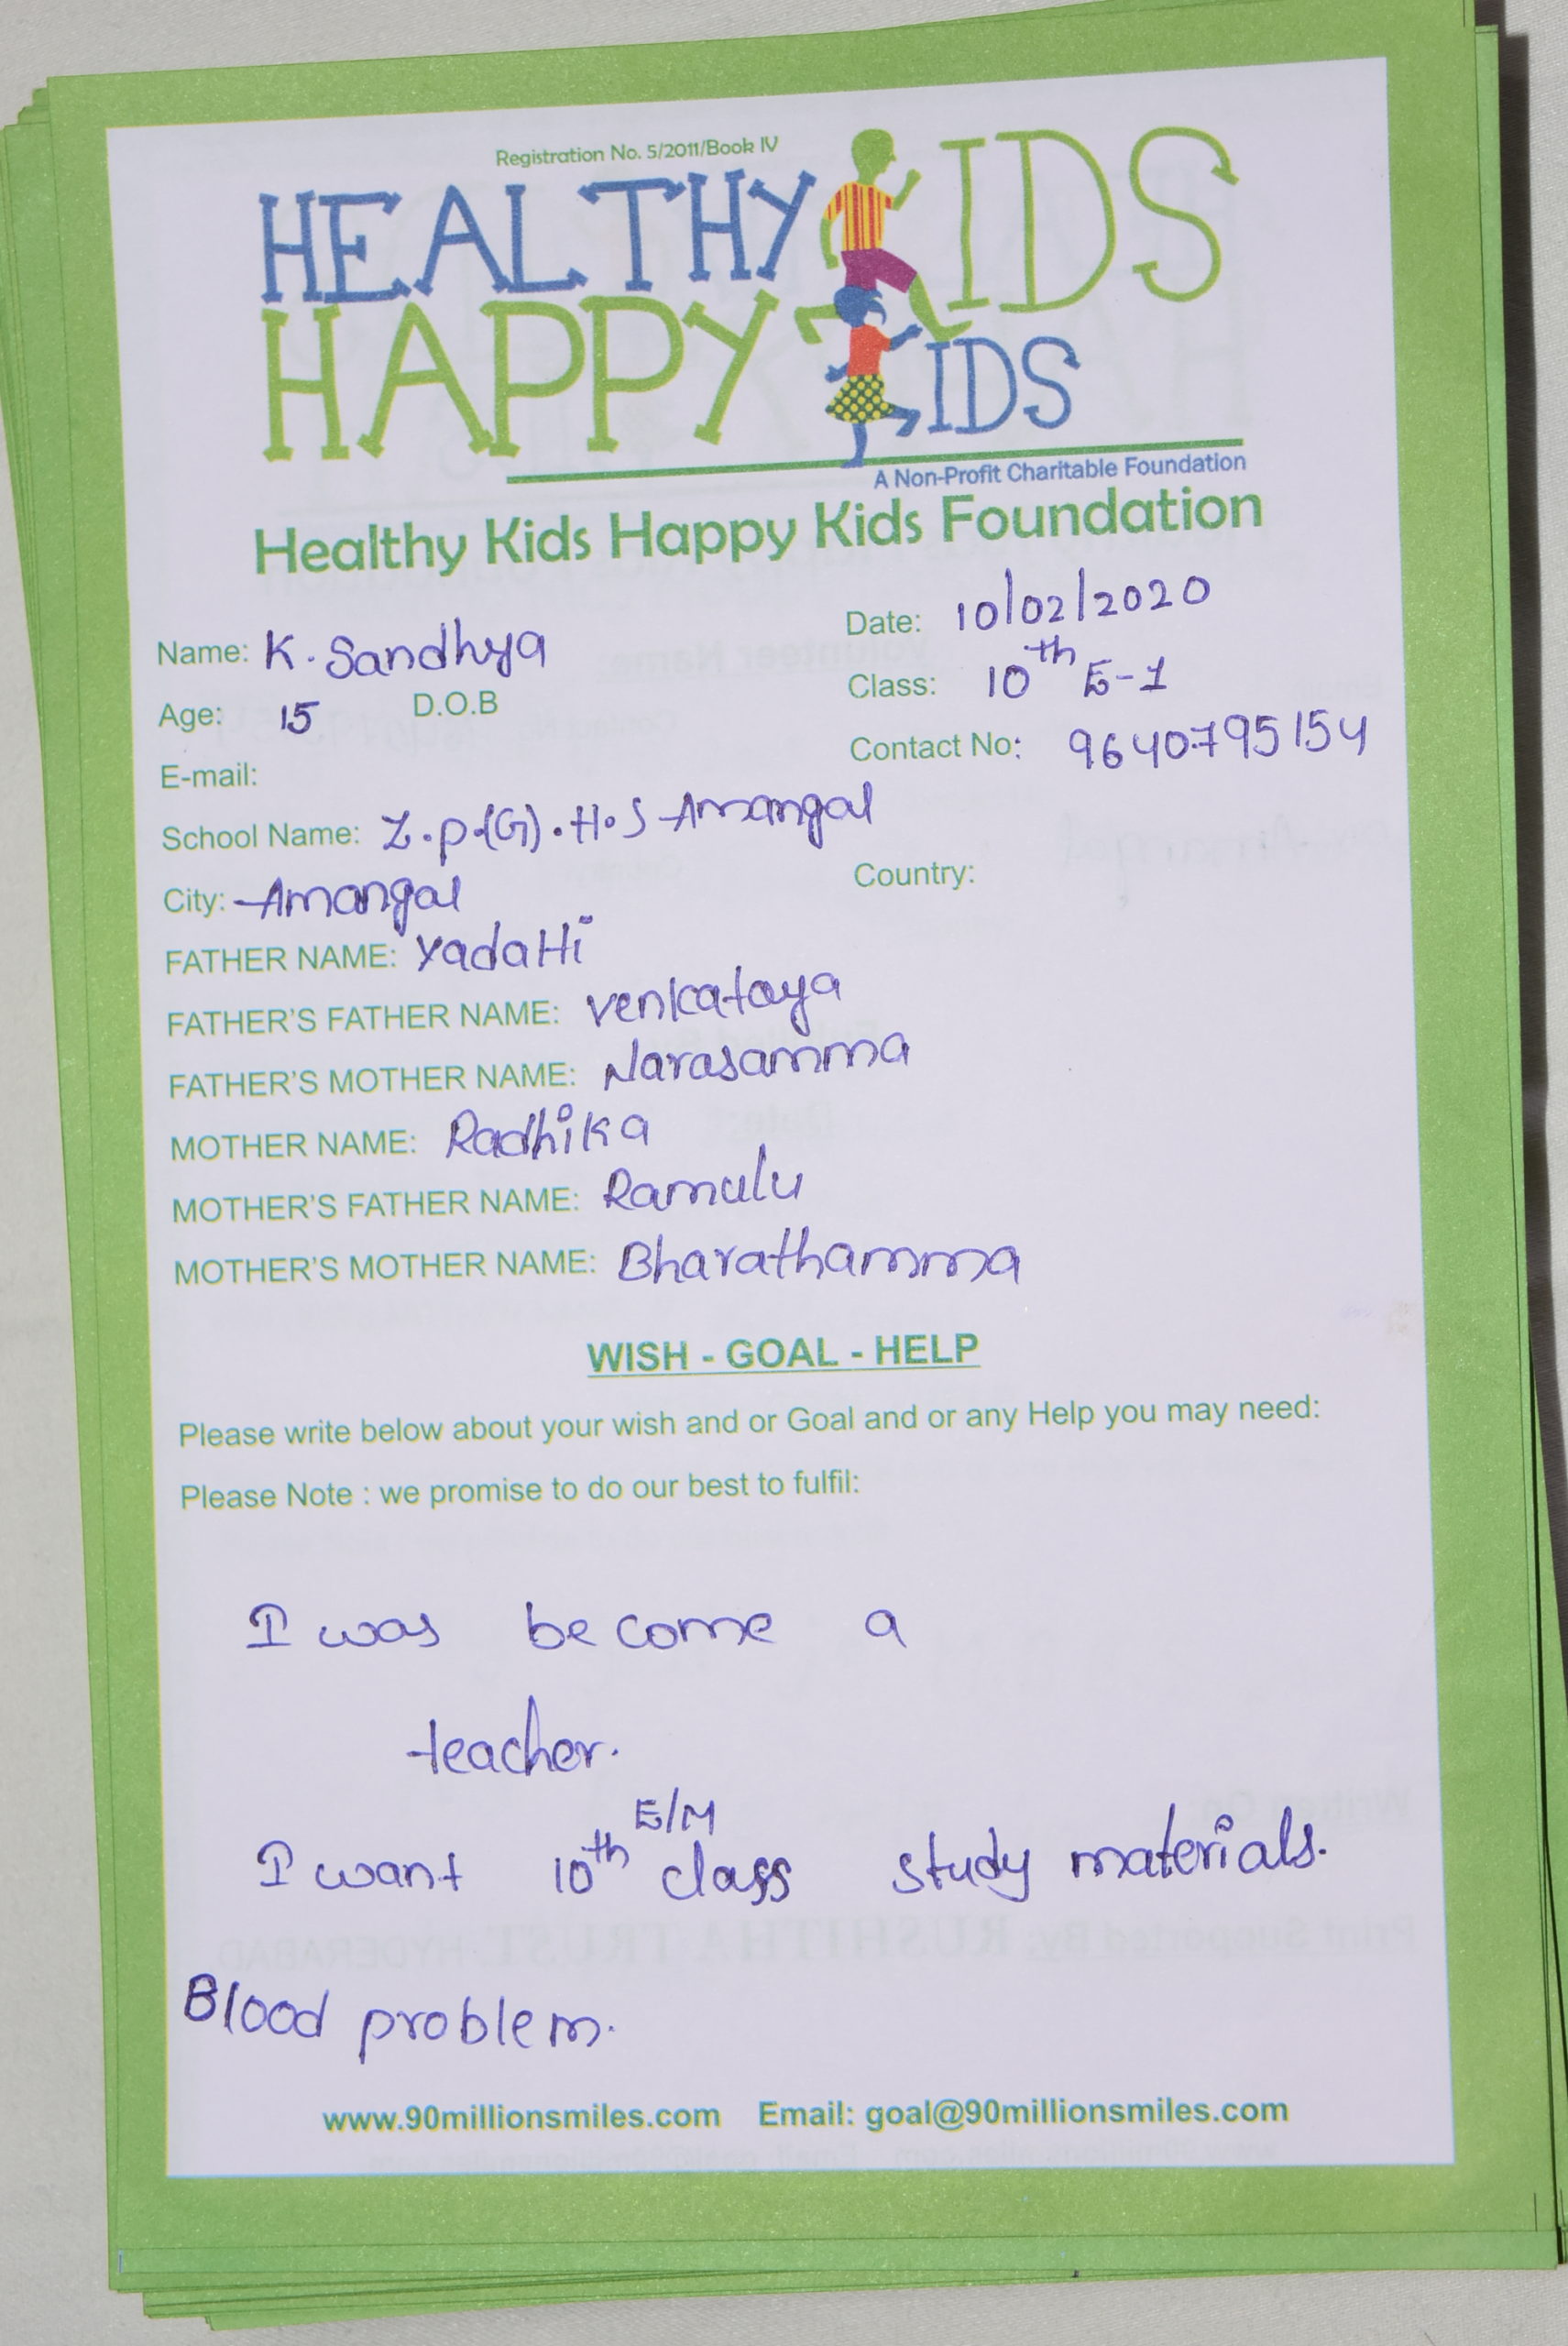 Registration No. 5/2011/Book IV
HEALTHY KIDS
HAPPY KIDS
A Non-Profit Charitable Foundation
Healthy Kids Happy Kids Foundation
Name: K. Sandhya Date: 10/02/2020
Age: 15 D.O.B Class: 10th E-1
E-mail: Contact No: 9640795154
School Name: Z.p.(G).H.S Amangal
City: Amangal Country:
FATHER NAME: Yadatti
FATHER'S FATHER NAME: Venkataya
FATHER'S MOTHER NAME: Narasamma
MOTHER NAME: Radhika
MOTHER'S FATHER NAME: Ramulu
MOTHER'S MOTHER NAME: Bharathamma
WISH - GOAL - HELP
Please write below about your wish and or Goal and or any Help you may need:
Please Note : we promise to do our best to fulfil:
I was become a
teacher.
E/M
I want 10th class study materials.
Blood problem.
www.90millionsmiles.com Email: goal@90millionsmiles.com